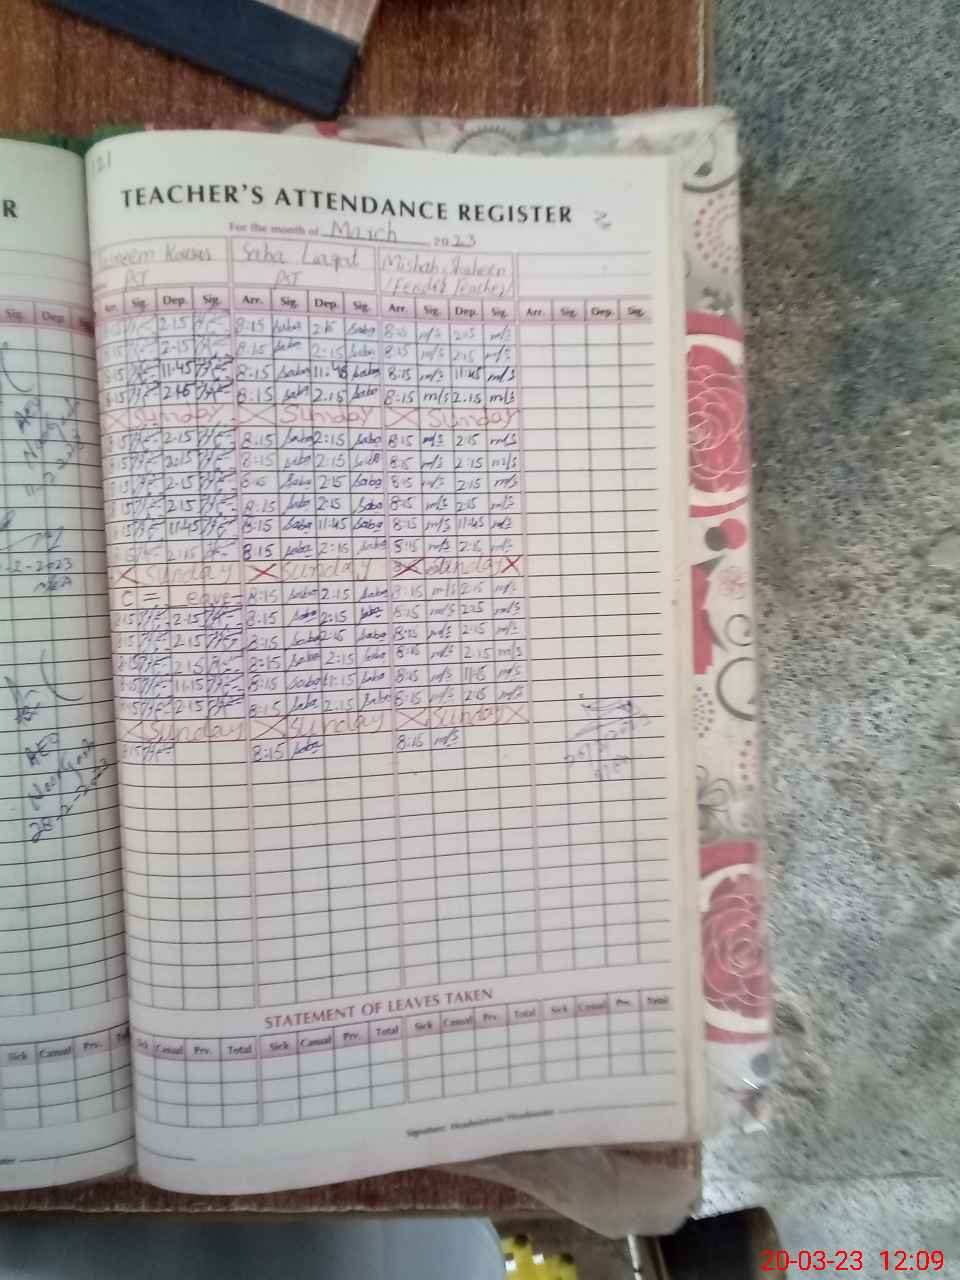 121
R
TEACHER'S ATTENDANCE REGISTER
For the month of March, 2023
Kousar Saba Liaqat Misbah Shaheen
PST PST (Feeder Teacher)
Sig. Dep. Arr. Sig. Dep. Sig. Arr. Sig. Dep. Sig. Arr. Sig. Dep. Sig. Arr. Sig. Dep. Sig.
8:15 2:15 8:15 Saba 2:15 Saba 8:15 m/s 2:15 m/s
8:15 2:15 8:15 Saba 2:15 Saba 8:15 m/s 2:15 m/s
8:15 11:45 8:15 Saba 11:45 Saba 8:15 m/s 11:45 m/s
8:15 2:15 8:15 Saba 2:15 Saba 8:15 m/s 2:15 m/s
Sunday Sunday Sunday
8:15 2:15 8:15 Saba 2:15 Saba 8:15 m/s 2:15 m/s
8:15 2:15 8:15 Saba 2:15 Saba 8:15 m/s 2:15 m/s
8:15 2:15 8:15 Saba 2:15 Saba 8:15 m/s 2:15 m/s
8:15 2:15 8:15 Saba 2:15 Saba 8:15 m/s 2:15 m/s
8:15 11:45 8:15 Saba 11:45 Saba 8:15 m/s 11:45 m/s
8:15 2:15 8:15 Saba 2:15 Saba 8:15 m/s 2:15 m/s
Sunday Sunday Sunday
C = Leave 8:15 Saba 2:15 Saba 8:15 m/s 2:15 m/s
8:15 2:15 8:15 Saba 2:15 Saba 8:15 m/s 2:15 m/s
8:15 2:15 8:15 Saba 2:15 Saba 8:15 m/s 2:15 m/s
8:15 2:15 8:15 Saba 2:15 Saba 8:15 m/s 2:15 m/s
8:15 11:15 8:15 Saba 11:15 Saba 8:15 m/s 11:15 m/s
8:15 2:15 8:15 Saba 2:15 Saba 8:15 m/s 2:15 m/s
Sunday Sunday Sunday
8:15 8:15 Saba 8:15 m/s
AEO
28-2-2023
STATEMENT OF LEAVES TAKEN
Sick Casual Prv. Sick Casual Prv. Total Sick Casual Prv. Total Sick Casual Prv. Total Sick Casual Prv. Total
Signature Headmistress/Headmaster
20-03-23 12:09